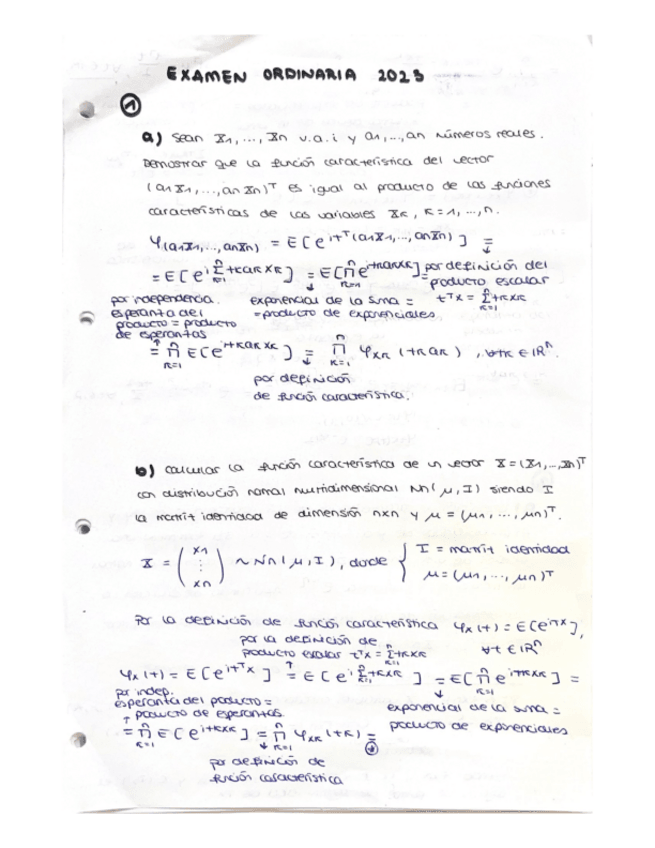 EXAMEN ORDINARIA 2023
1
a) Sean X1, ..., Xn v.a.i y a1, ..., an números reales.
Demostrar que la función característica del vector
(a1X1, ..., anXn)^T es igual al producto de las funciones
características de las variables Xk, k=1, ..., n.
φ(a1X1, ..., anXn) = E[e^{it^T(a1X1, ..., anXn)}] =
= E[e^{i Σ_{k=1}^n tkakXk}] = E[Π_{k=1}^n e^{itkakXk}] por definición del
producto escalar
t^Tx = Σ_{k=1}^n tkxk
por independencia. exponencial de la suma =
esperanza del = producto de exponenciales
producto = producto
de esperanzas
= Π_{k=1}^n E[e^{itkakXk}] = Π_{k=1}^n φXk(tkak), ∀tk ∈ IR^n.
por definición
de función característica.
b) Calcular la función característica de un vector X = (X1, ..., Xn)^T
con distribución normal multidimensional Nn(μ, I) siendo I
la matriz identidad de dimensión nxn y μ = (μ1, ..., μn)^T.
X = (x1 ⋮ xn) ~ Nn(μ, I), donde { I = matriz identidad
μ = (μ1, ..., μn)^T
Por la definición de función característica φx(t) = E[e^{itx}],
∀t ∈ IR^n
por la definición de
producto escalar t^Tx = Σ_{k=1}^n tkxk
φx(t) = E[e^{it^Tx}] = E[e^{i Σ_{k=1}^n tkxk}] = E[Π_{k=1}^n e^{itkxk}] =
por indep.
esperanza del producto = exponencial de la suma =
producto de esperanzas producto de exponenciales
= Π_{k=1}^n E[e^{itkxk}] = Π_{k=1}^n φxk(tk) =
por definición de
función característica